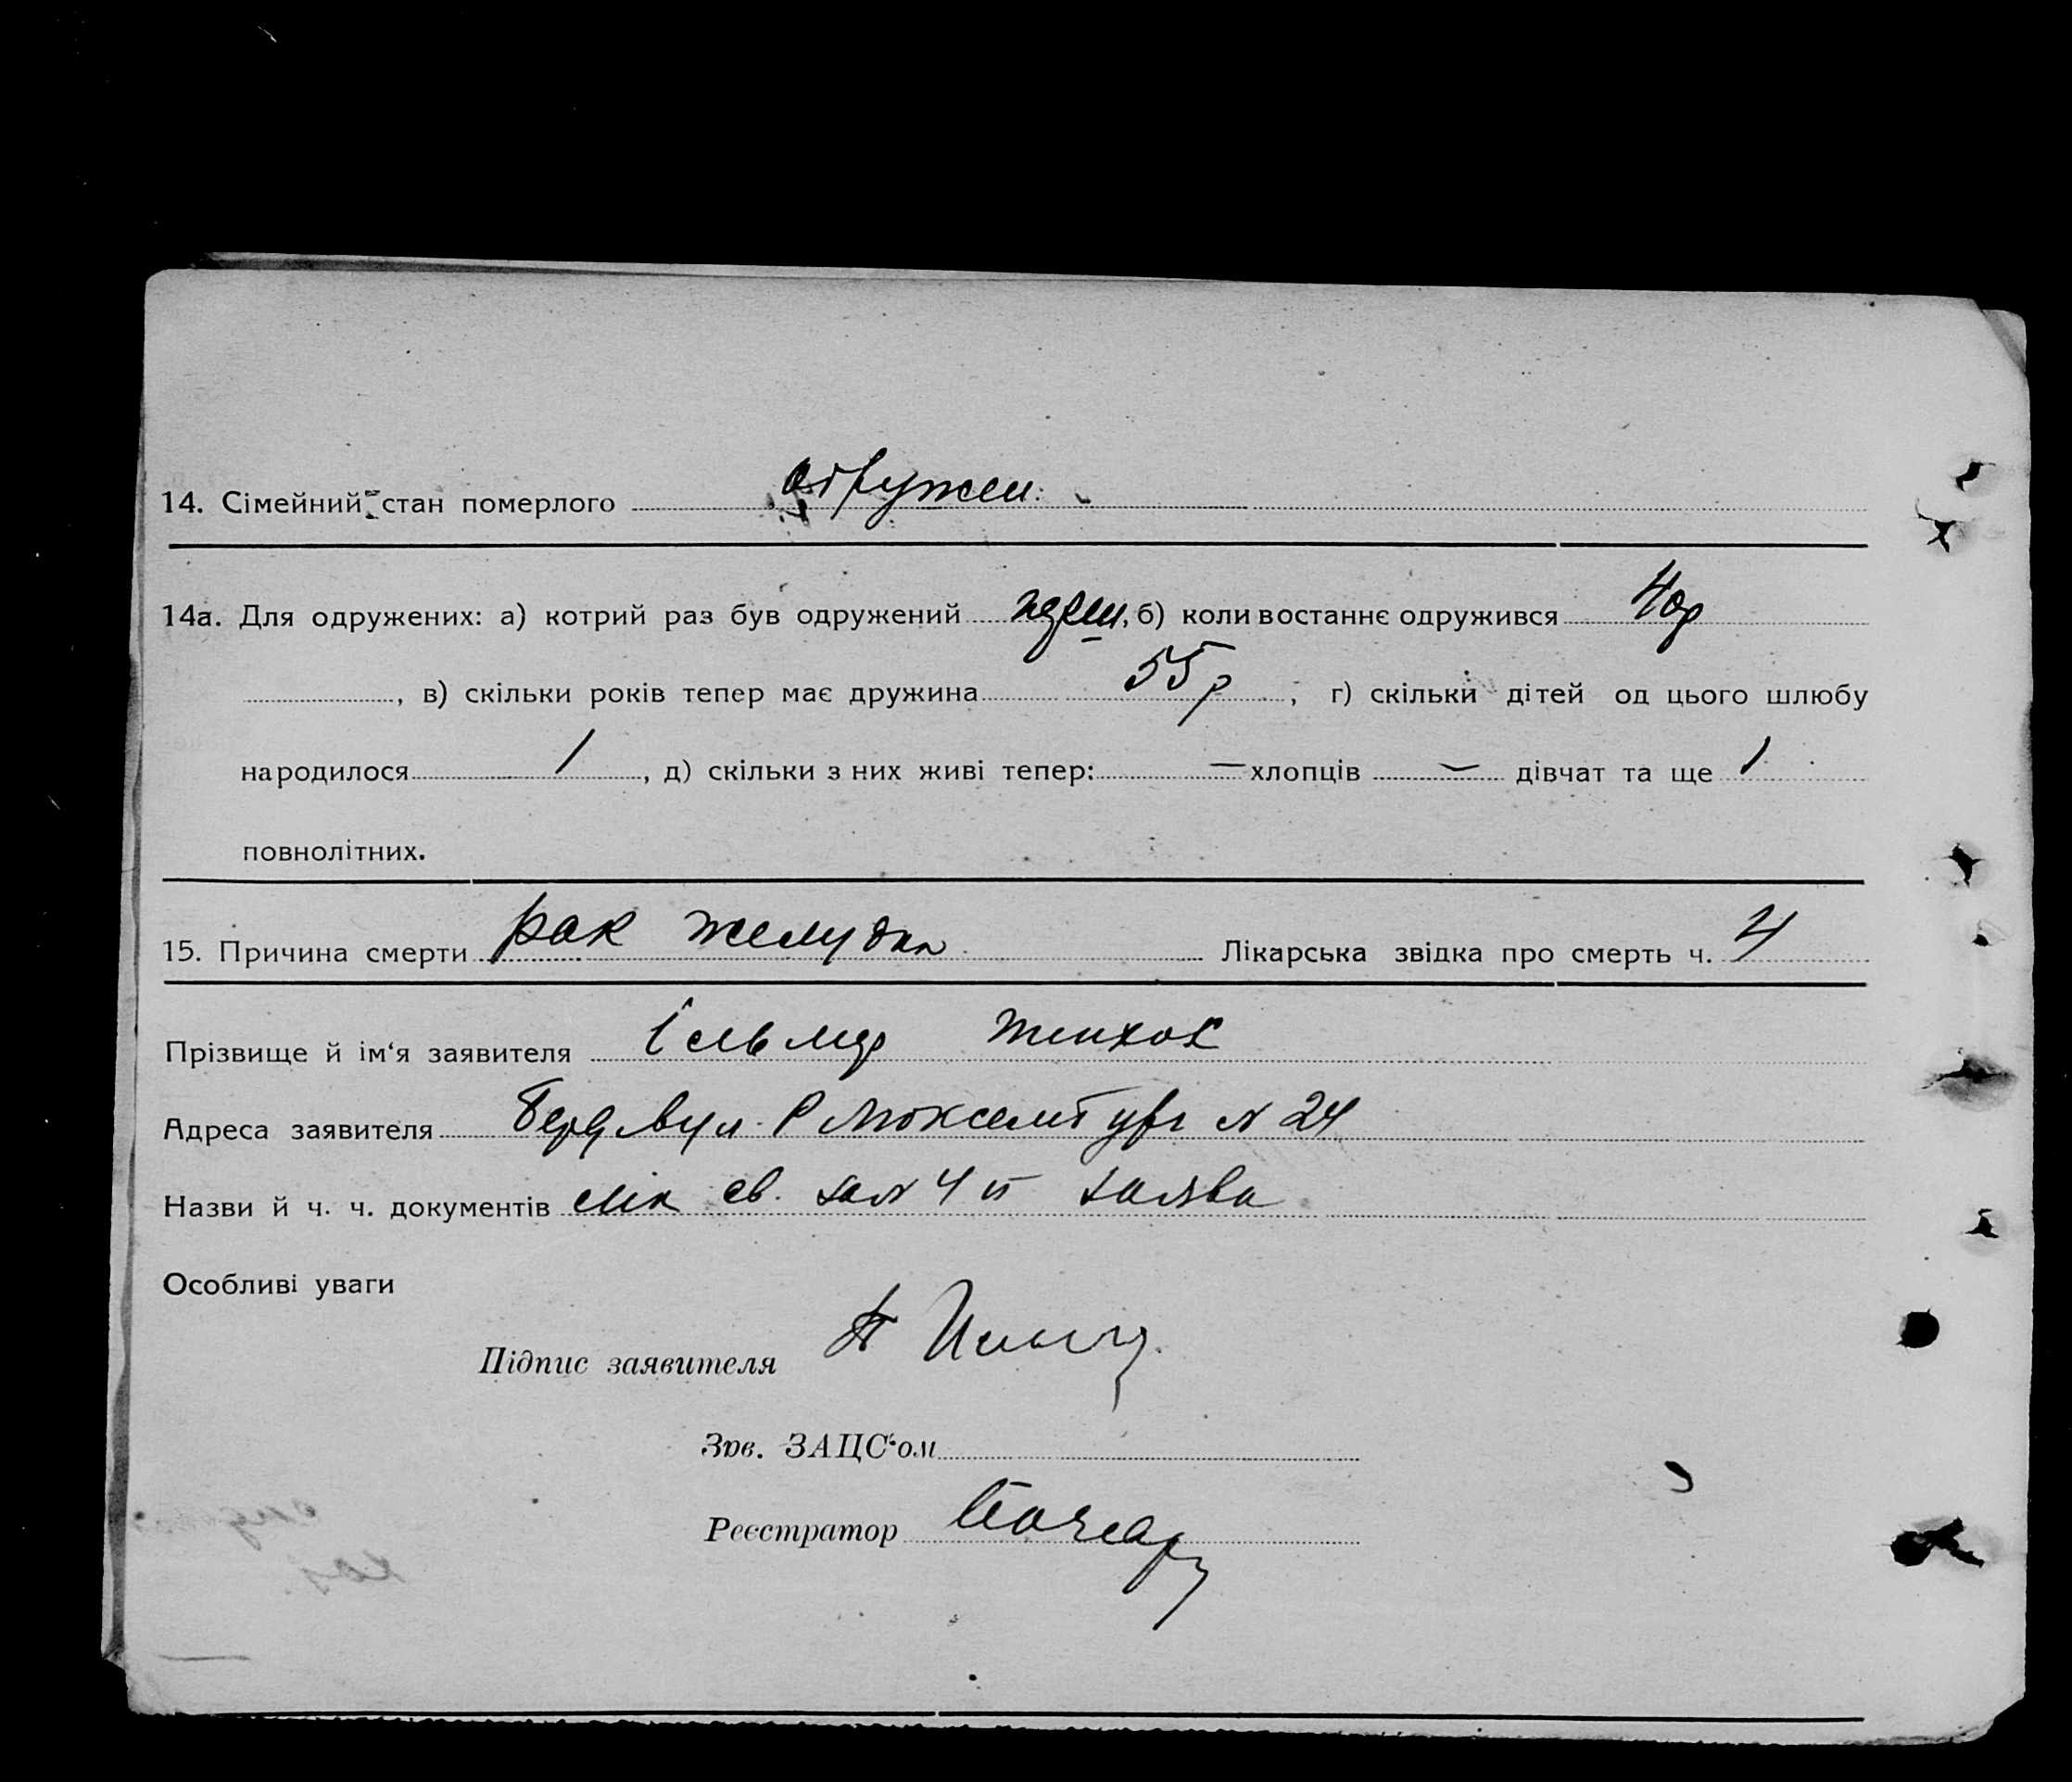 14. Сімейний стан померлого одружен.
14а. Для одружених: а) котрий раз був одружений перш, б) коли востаннє одружився 40р
, в) скільки років тепер має дружина 55р, г) скільки дітей од цього шлюбу
народилося 1, д) скільки з них живі тепер: — хлопців — дівчат та ще 1
повнолітних.
15. Причина смерти рак желудка Лікарська звідка про смерть ч. 4
Прізвище й ім‘я заявителя
Адреса заявителя вул. Р Люксембург № 24
Назви й ч. ч. документів лік св. за № 4 заява
Особливі уваги
Підпис заявителя
Зав. ЗАЦС‘ом
Реєстратор